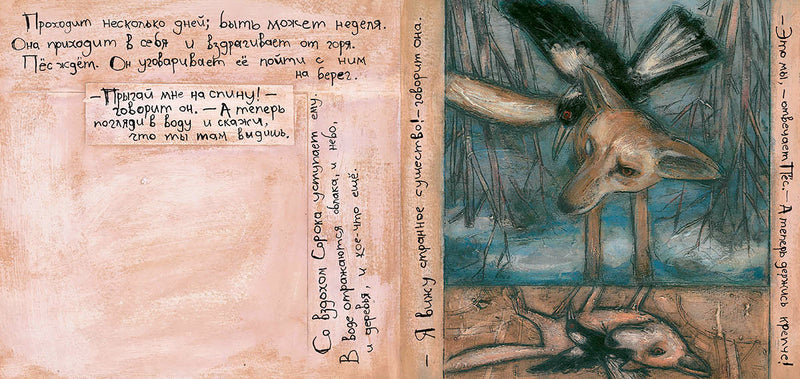 Проходит несколько дней; быть может неделя.
Она приходит в себя и вздрагивает от горя.
Пёс ждёт. Он уговаривает её пойти с ним
на берег.
— Прыгай мне на спину! —
говорит он. — А теперь
погляди в воду и скажи,
что ты там видишь.
Со вздохом Сорока уступает ему.
В воде отражаются облака, и небо,
и деревья, и кое-что ещё.
— Я вижу странное существо! — говорит она.
— Это мы, — отвечает Пёс. — А теперь держись крепче!